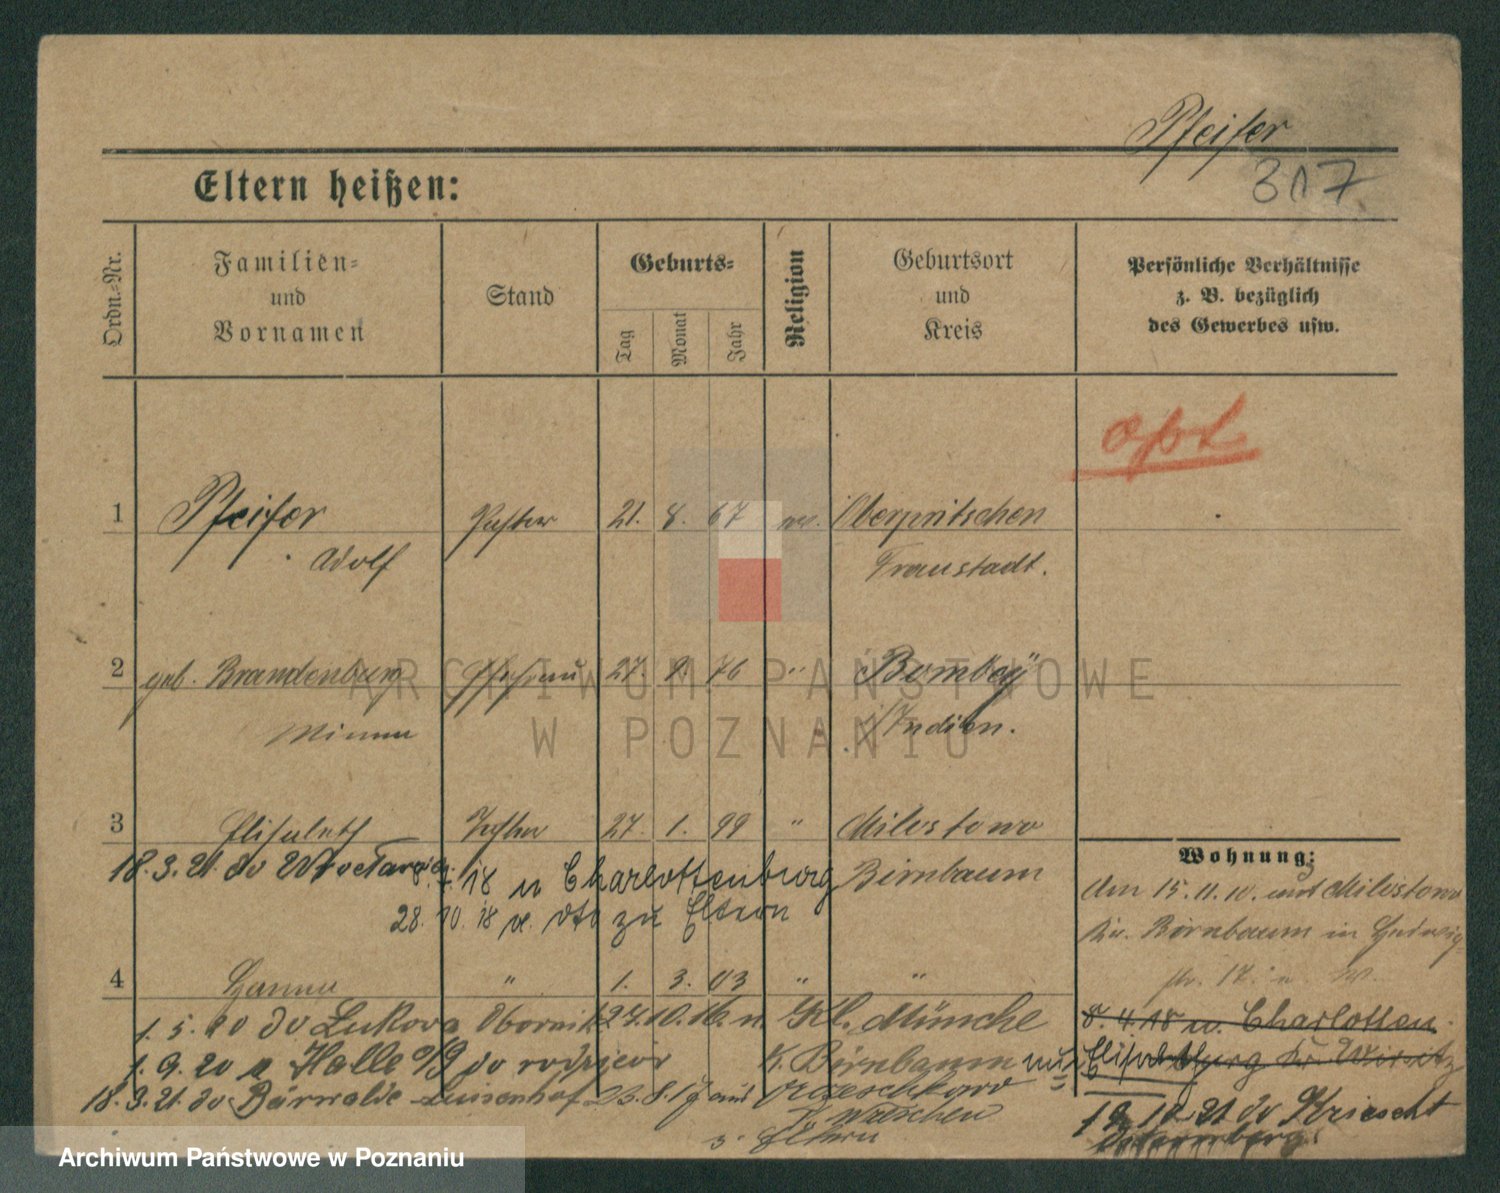 Pfeifer
317
Eltern heißen:
Ordn.-Nr.
Familien-
und
Vornamen
Stand
Geburts-
Tag
Monat
Jahr
Religion
Geburtsort
und
Kreis
Persönliche Verhältnisse
z. B. bezüglich
des Gewerbes usw.
opt
1 Pfeifer Pastor 21. 8. 67 ev. Oberpritschen
Adolf Fraustadt.
2 geb. Brandenburg Ehefrau 27. 9. 76 " Bombey
Minna Indien.
3 Elisabeth Tochter 27. 1. 99 " Milostowo
Birnbaum
18. 3. 21. do 18 n Charlottenburg
28. 10. 18 v. dto zu Eltern
4 Hanna " 1. 3. 03 " "
1. 5. 20 do Lukowa Obornik 27.10.16. n. Kl. Münche
1. 9. 20 a Halle a/S do rodziców K. Birnbaum
18. 3. 21. do Bärwalde Luisenhof 23. 8. 17 aus
z. Eltern
Wohnung:
Am 15. 11. 10. aus Milostowo
Kr. Birnbaum in Hedwig
str. 17.
8. 4. 18 n. Charlotten
nur Elisabeth burg Kr. Wirsitz
19 12 21 do Kriescht
ARCHIWUM PAŃSTWOWE
W POZNANIU
Archiwum Państwowe w Poznaniu